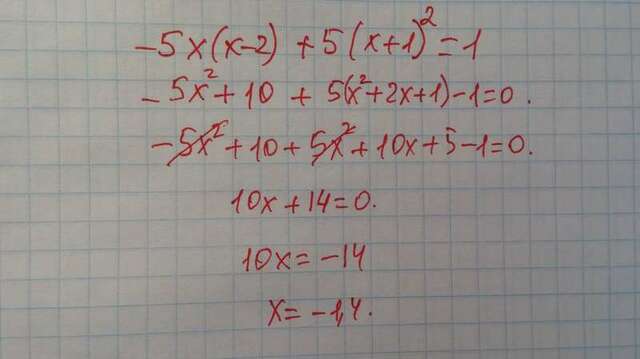 -5x(x-2) + 5(x+1)² = 1
-5x² + 10 + 5(x²+2x+1) - 1 = 0.
-5x² + 10 + 5x² + 10x + 5 - 1 = 0.
10x + 14 = 0.
10x = -14
x = -1,4.